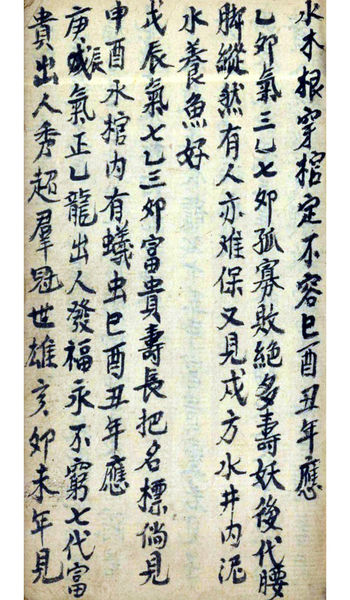 水木根穿棺定不容巳酉丑年應
乙卯氣三乙七卯孤寡敗絕多壽妖後代腰
脚縱然有人亦难保又見戌方水井内泥
水養魚好
戊辰氣七乙三卯富貴壽長把名標倘見
申酉水棺内有蟻虫巳酉丑年應
庚辰氣正乙龍出人發福永不窮七代富
貴出人秀超羣冠世雄亥卯未年見